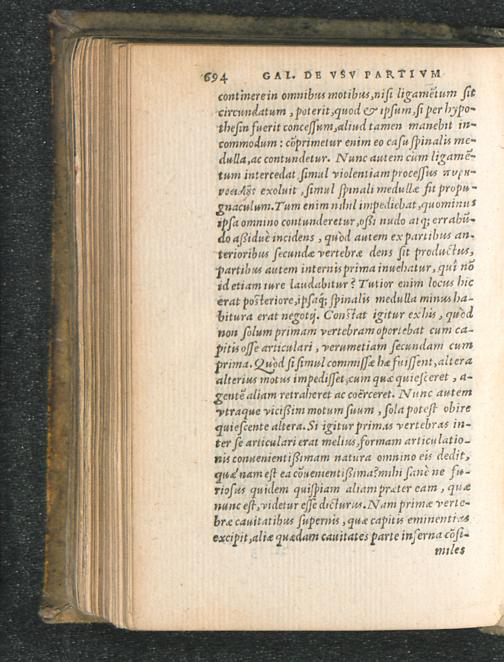 694 GAL. DE VSV PARTIVM
continere in omnibus motibus, nisi ligamẽtum sit
circundatum, poterit, quod & ipsum, si per hypo-
thesin fuerit concessum, aliud tamen manebit in-
commodum: cõprimetur enim eo casu spinalis me-
dulla, ac contundetur. Nunc autem cùm ligamẽ-
tum intercedat simul violentiam processus πυρη-
νοειδῆς exoluit, simul spinali medullæ sit propu-
gnaculum. Tum enim nihil impediebat, quominus
ipsa omnino contunderetur, ossi nudo atq; errabũ-
do assiduè incidens, quòd autem ex partibus an-
terioribus secundæ vertebræ dens sit productus,
partibus autem internis prima inuehatur, quî nõ
id etiam iure laudabitur? Tutior enim locus hic
erat posteriore, ipsaq; spinalis medulla minus ha-
bitura erat negotij. Constat igitur ex his, quòd
non solum primam vertebram oportebat cum ca-
pitis osse articulari, verumetiam secundam cum
prima. Quòd si simul commissæ hæ fuissent, altera
alterius motus impedisset, cum quæ quiesceret, a-
gentẽ aliam retraheret ac coërceret. Nunc autem
vtraque vicissim motum suum, sola potest obire
quiescente altera. Si igitur primas vertebras in-
ter se articulari erat melius, formam articulatio-
nis conuenientissimam natura omnino eis dedit,
quæ nam est ea cõuenientissima? mihi sanè ne fu-
riosus quidem quispiam aliam præter eam, quæ
nunc est, videtur esse dicturus. Nam primæ verte-
bræ cauitatibus supernis, quæ capitis eminentias
excipit, aliæ quædam cauitates parte inferna cõsi-
miles